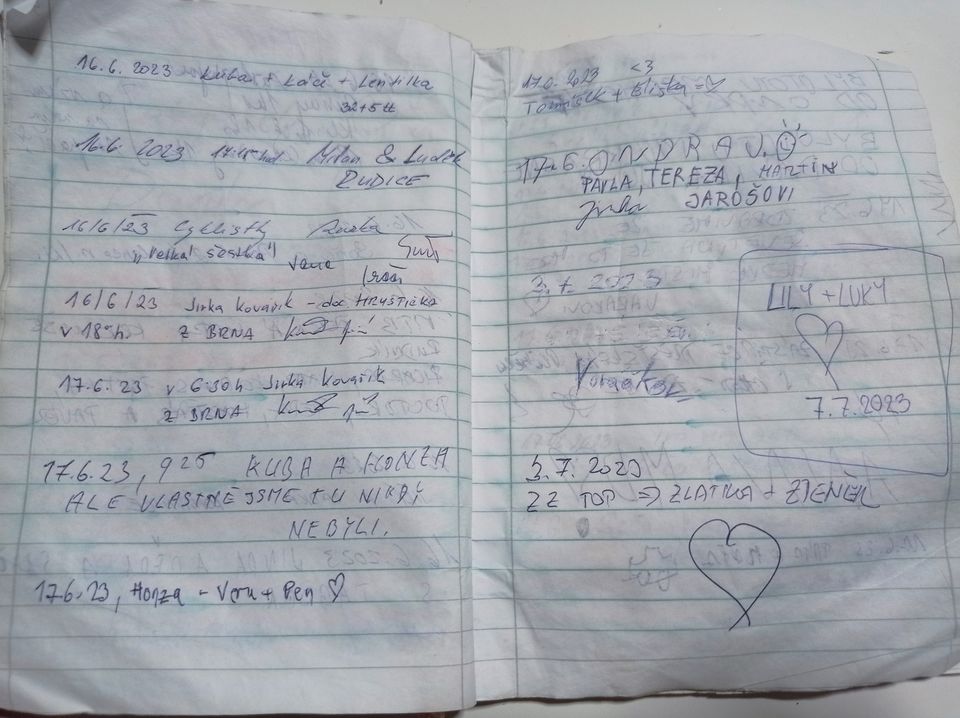 16.6. 2023 Kuba + Káča + Lentilka
32+5tt
16.6. 2023 Milan & Luděk
RUDICE
16/6/23 Cyklistky
"Velká šestka"
Jana
16/6/23 Jirka Kovařík - do HRYŠTIČKA
v 18⁰⁰h. Z BRNA
17.6.23 v 630h Jirka Kovařík
Z BRNA
17.6.23, 925 KUBA A HONZA
ALE VLASTNĚ JSME TU NIKDY
NEBYLI.
17.6.23, Honza - Veru + Ben ♡
17.6. 2023 <3
Tomášek + Eliška = ♡
17.6. ONDRA J.
PAVLA, TEREZA, MARTIN
JAROŠOVI
3.7. 2023
LILY + LUKY
7.7.2023
3.7. 2023
ZZ TOP => ZLATKA + ZDENĚK